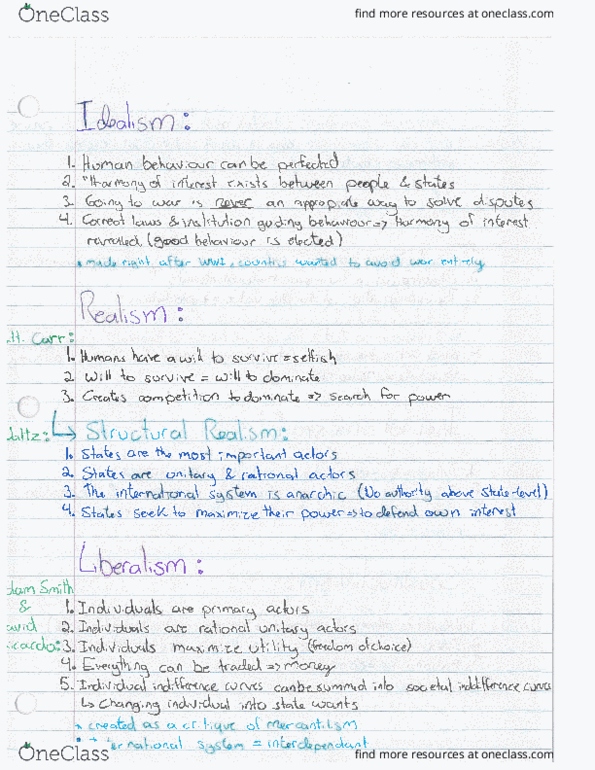 OneClass find more resources at oneclass.com
Idealism:
1. Human behaviour can be perfected
2. "Harmony of interest exists between people & states
3. Going to war is never an appropiate way to solve disputes
4. Correct laws & institution guding behaviour => Harmony of interest
revealed (good behaviour is elected)
* made right after WWI, countries wanted to avoid war entirely
Realism:
.H. Carr:
1. Humans have a will to survive = selfish
2. Will to survive = will to dominate
3. Creates competition to dominate => search for power
altz: ↳ Structural Realism:
1. States are the most important actors
2. States are unitary & rational actors
3. The international system is anarchic (No authority above state-level)
4. States seek to maximize their power => to defend own interest
Liberalism:
dam Smith
& 1. Individuals are primary actors
avid 2. Individuals are rational unitary actors
icardo: 3. Individuals maximize utility (freedom of choice)
4. Everything can be traded => money
5. Individual indifference curves can be summed into societal indifference curves
↳ Changing individual into state wants
* created as a critique of mercantilism
ernational system = interdependant
OneClass find more resources at oneclass.com